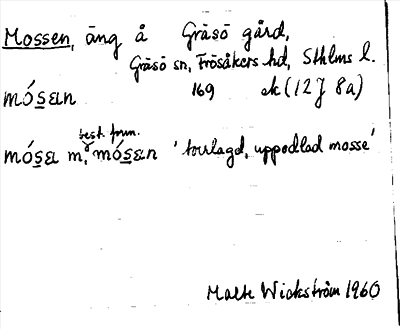 Mossen, äng å Gräsö gård,
Gräsö sn, Frösåkers hd, Sthlms l.
mósan 169 ek (12J 8a)
best. form.
mósa m, mósan 'torrlagd, uppodlad mosse'
Malte Wickström 1960